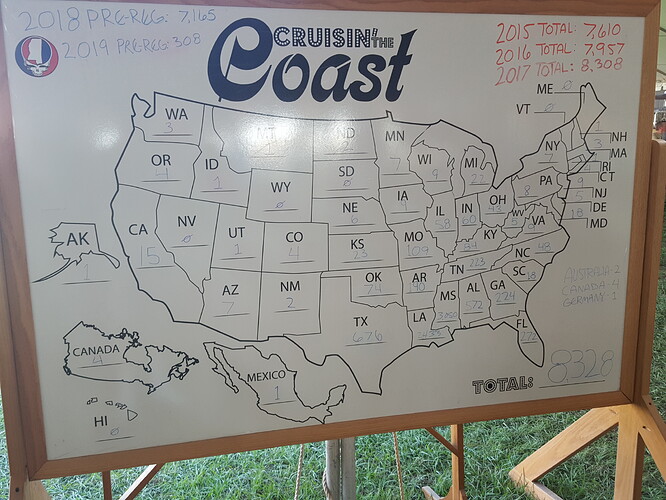 2018 PRE-REG: 7,165
2019 PRE-REG: 308
CRUISIN' THE
Coast
2015 TOTAL: 7,610
2016 TOTAL: 7,957
2017 TOTAL: 8,308
ME Ø
VT Ø
NH
MA
RI
CT
NJ
DE
MD
WA 3
OR 4
CA 15
NV Ø
ID 1
MT 1
WY Ø
UT 1
AZ 7
CO 4
NM 2
ND
SD Ø
NE 6
KS 23
OK 74
TX 676
MN 7
IA
MO 109
AR 190
LA
WI 9
IL 58
MI 22
IN 60
OH 43
KY
TN 223
MS
AL 572
GA 224
FL 272
SC
NC 48
VA
WV
PA 8
NY 7
AK 1
CANADA 4
HI Ø
MEXICO 1
AUSTRALIA 2
CANADA - 4
GERMANY - 1
TOTAL: 8,328